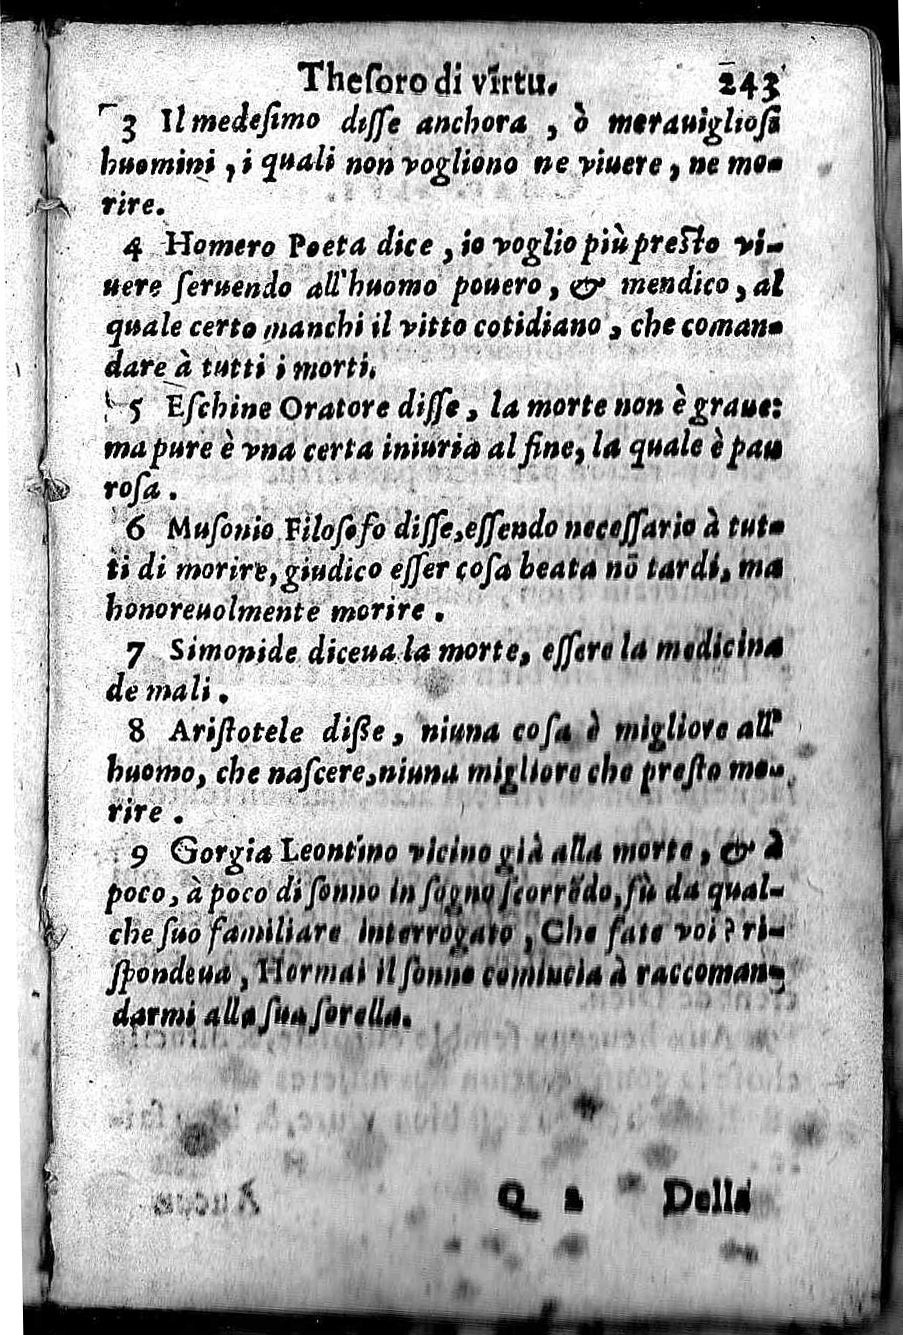 Theſoro di virtu. 243
3 Il medeſimo diſſe anchora , ò merauiglioſi
huomini , i quali non vogliono ne viuere , ne mo-
rire.
4 Homero Poeta dice , io voglio più preſto vi-
uere ſeruendo all'huomo pouero , & mendico , al
quale certo manchi il vitto cotidiano , che coman-
dare à tutti i morti.
5 Eſchine Oratore diſſe , la morte non è graue:
ma pure è vna certa iniuria al fine, la quale è pau
roſa .
6 Muſonio Filoſofo diſſe, eſſendo neceſſario à tut-
ti di morire, giudico eſſer coſa beata nō tardi, ma
honoreuolmente morire .
7 Simonide diceua la morte, eſſere la medicina
de mali .
8 Ariſtotele diße , niuna coſa è migliore all'
huomo, che naſcere, niuna migliore che preſto mo-
rire .
9 Gorgia Leontino vicino già alla morte , & à
poco , à poco di ſonno in ſogno ſcorrēdo, fù da qual-
che ſuo familiare interrogato , Che fate voi ? ri-
ſpondeua , Hormai il ſonno comincia à raccoman-
darmi alla ſua ſorella.
Q 2 Della